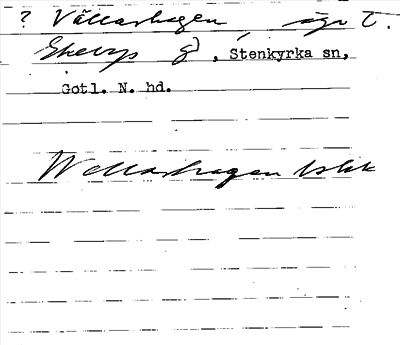 ? Vällarhagen, ägor t.
Ekeryp gd, Stenkyrka sn,
Gotl. N. hd.
Wellarhagen